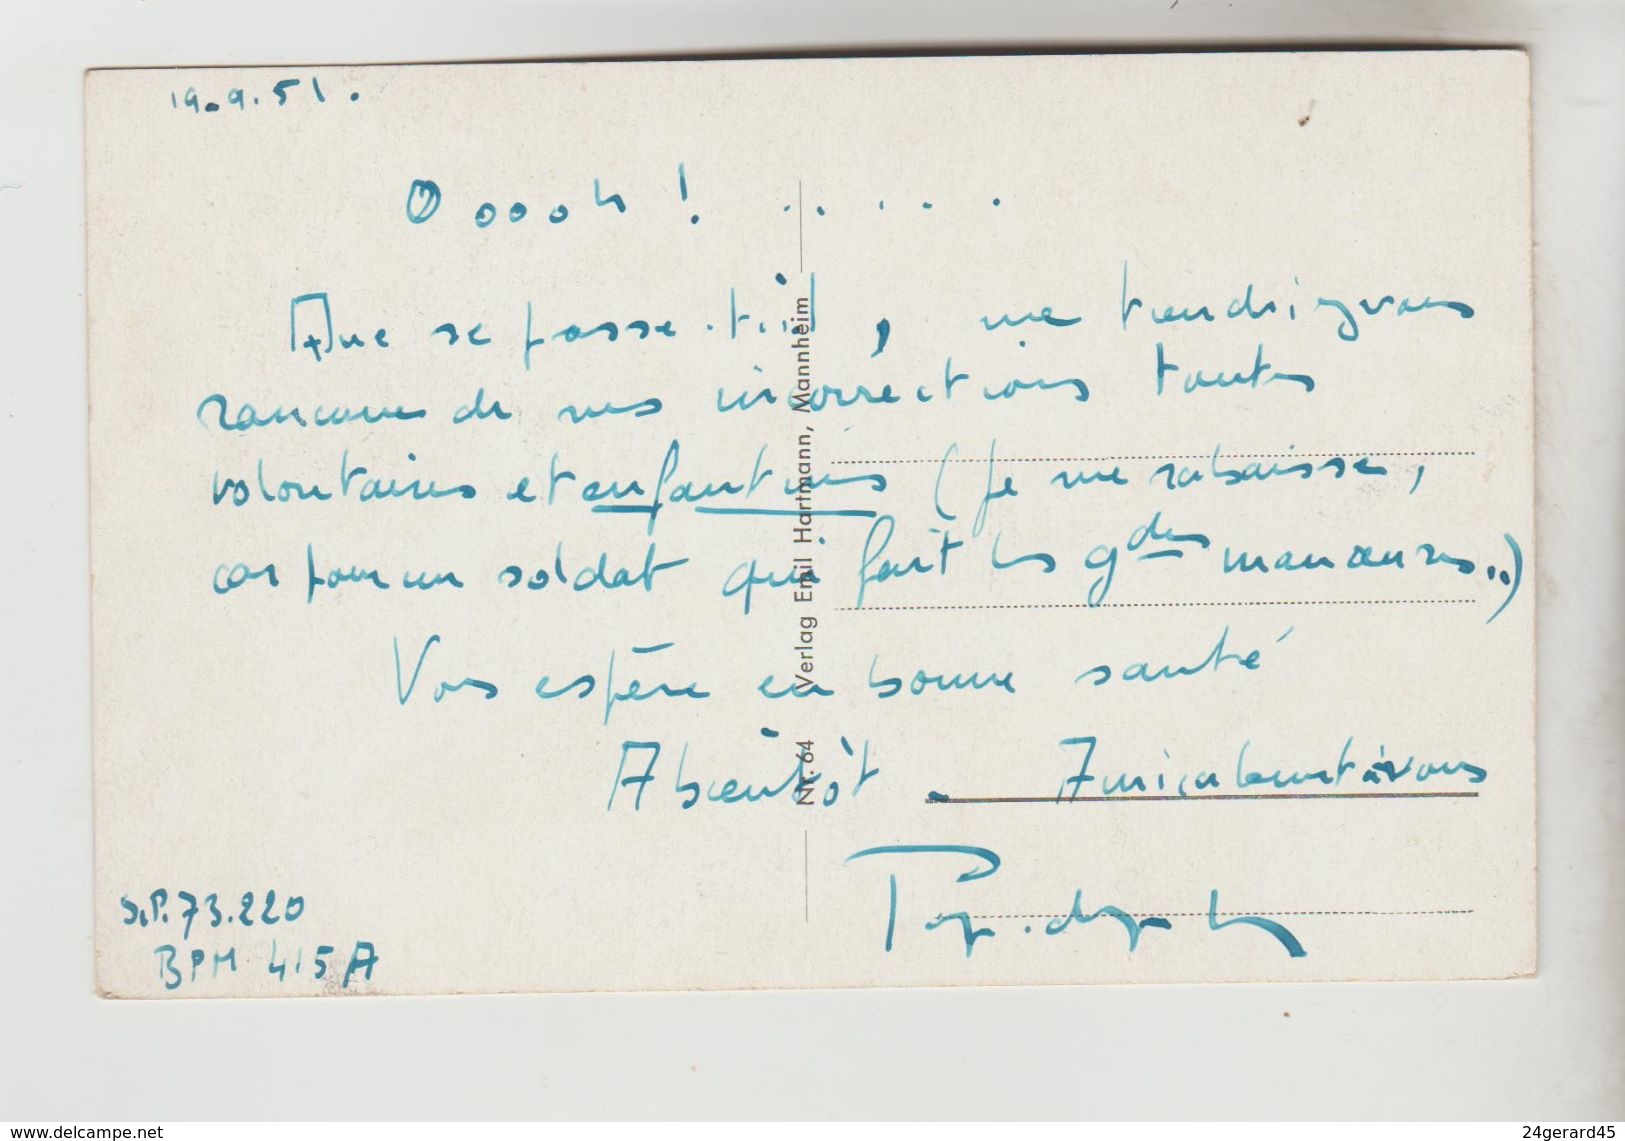 19.9.51.
Ooooh ! . . . . .
Que se passe-t-il, me tiendriez vous
rancune de mes incorrections toutes
volontaires et enfantines (Je me rabaisse,
car pour un soldat qui fait les gdes manœuvres..)
Vous espère en bonne santé
A bientôt. Amicalement à vous
S.P. 73.220
BPM 415A
Nr. 64 Verlag Emil Hartmann, Mannheim
www.delcampe.net
24gerard45